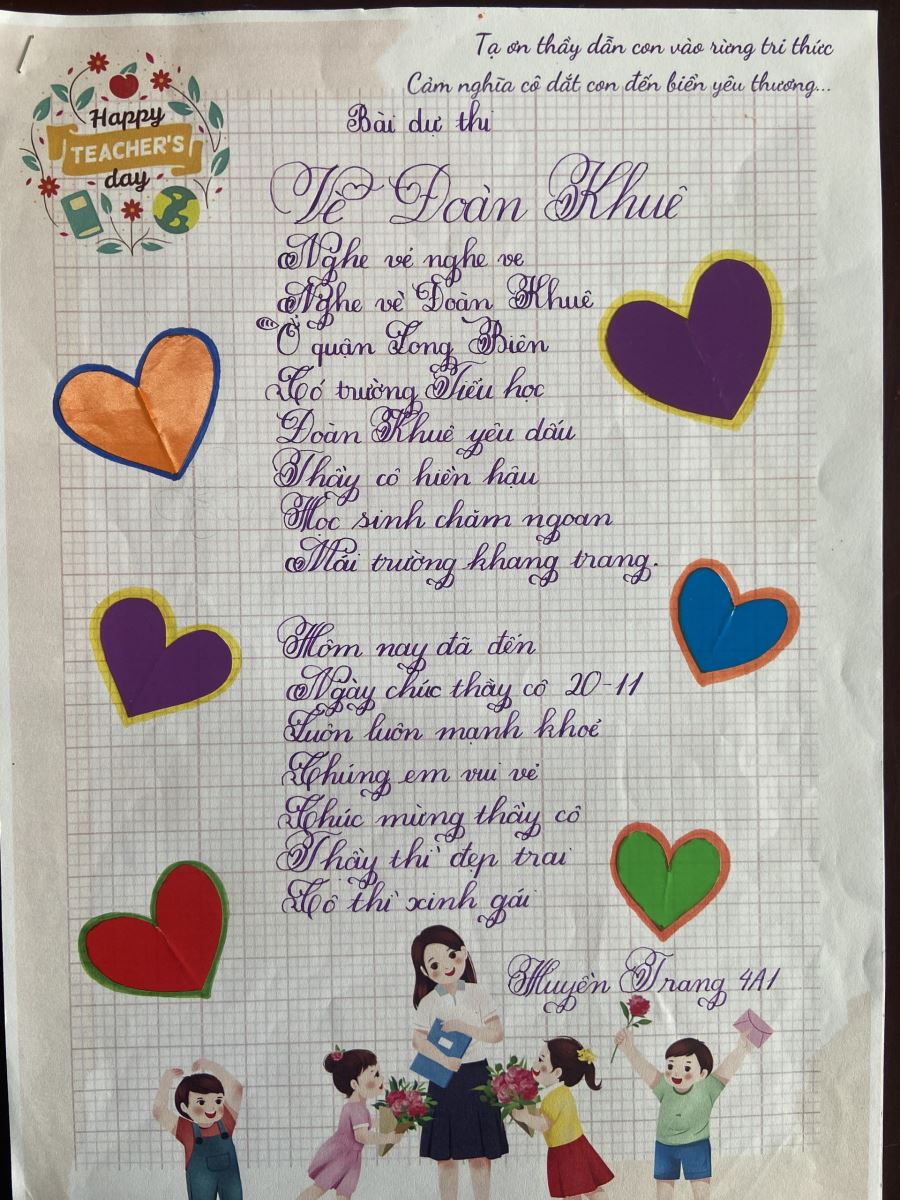 Tạ ơn thầy dẫn con vào rừng tri thức
Cảm nghĩa cô dắt con đến biển yêu thương...
Happy
TEACHER'S
day
Bài dự thi
Vè Đoàn Khuê
Nghe vẻ nghe ve
Nghe vè Đoàn Khuê
Ở quận Long Biên
Có trường Tiểu học
Đoàn Khuê yêu dấu
Thầy cô hiền hậu
Học sinh chăm ngoan
Mái trường khang trang.
Hôm nay đã đến
Ngày chúc thầy cô 20-11
Luôn luôn mạnh khoẻ
Chúng em vui vẻ
Chúc mừng thầy cô
Thầy thì đẹp trai
Cô thì xinh gái
Huyền Trang 4A1